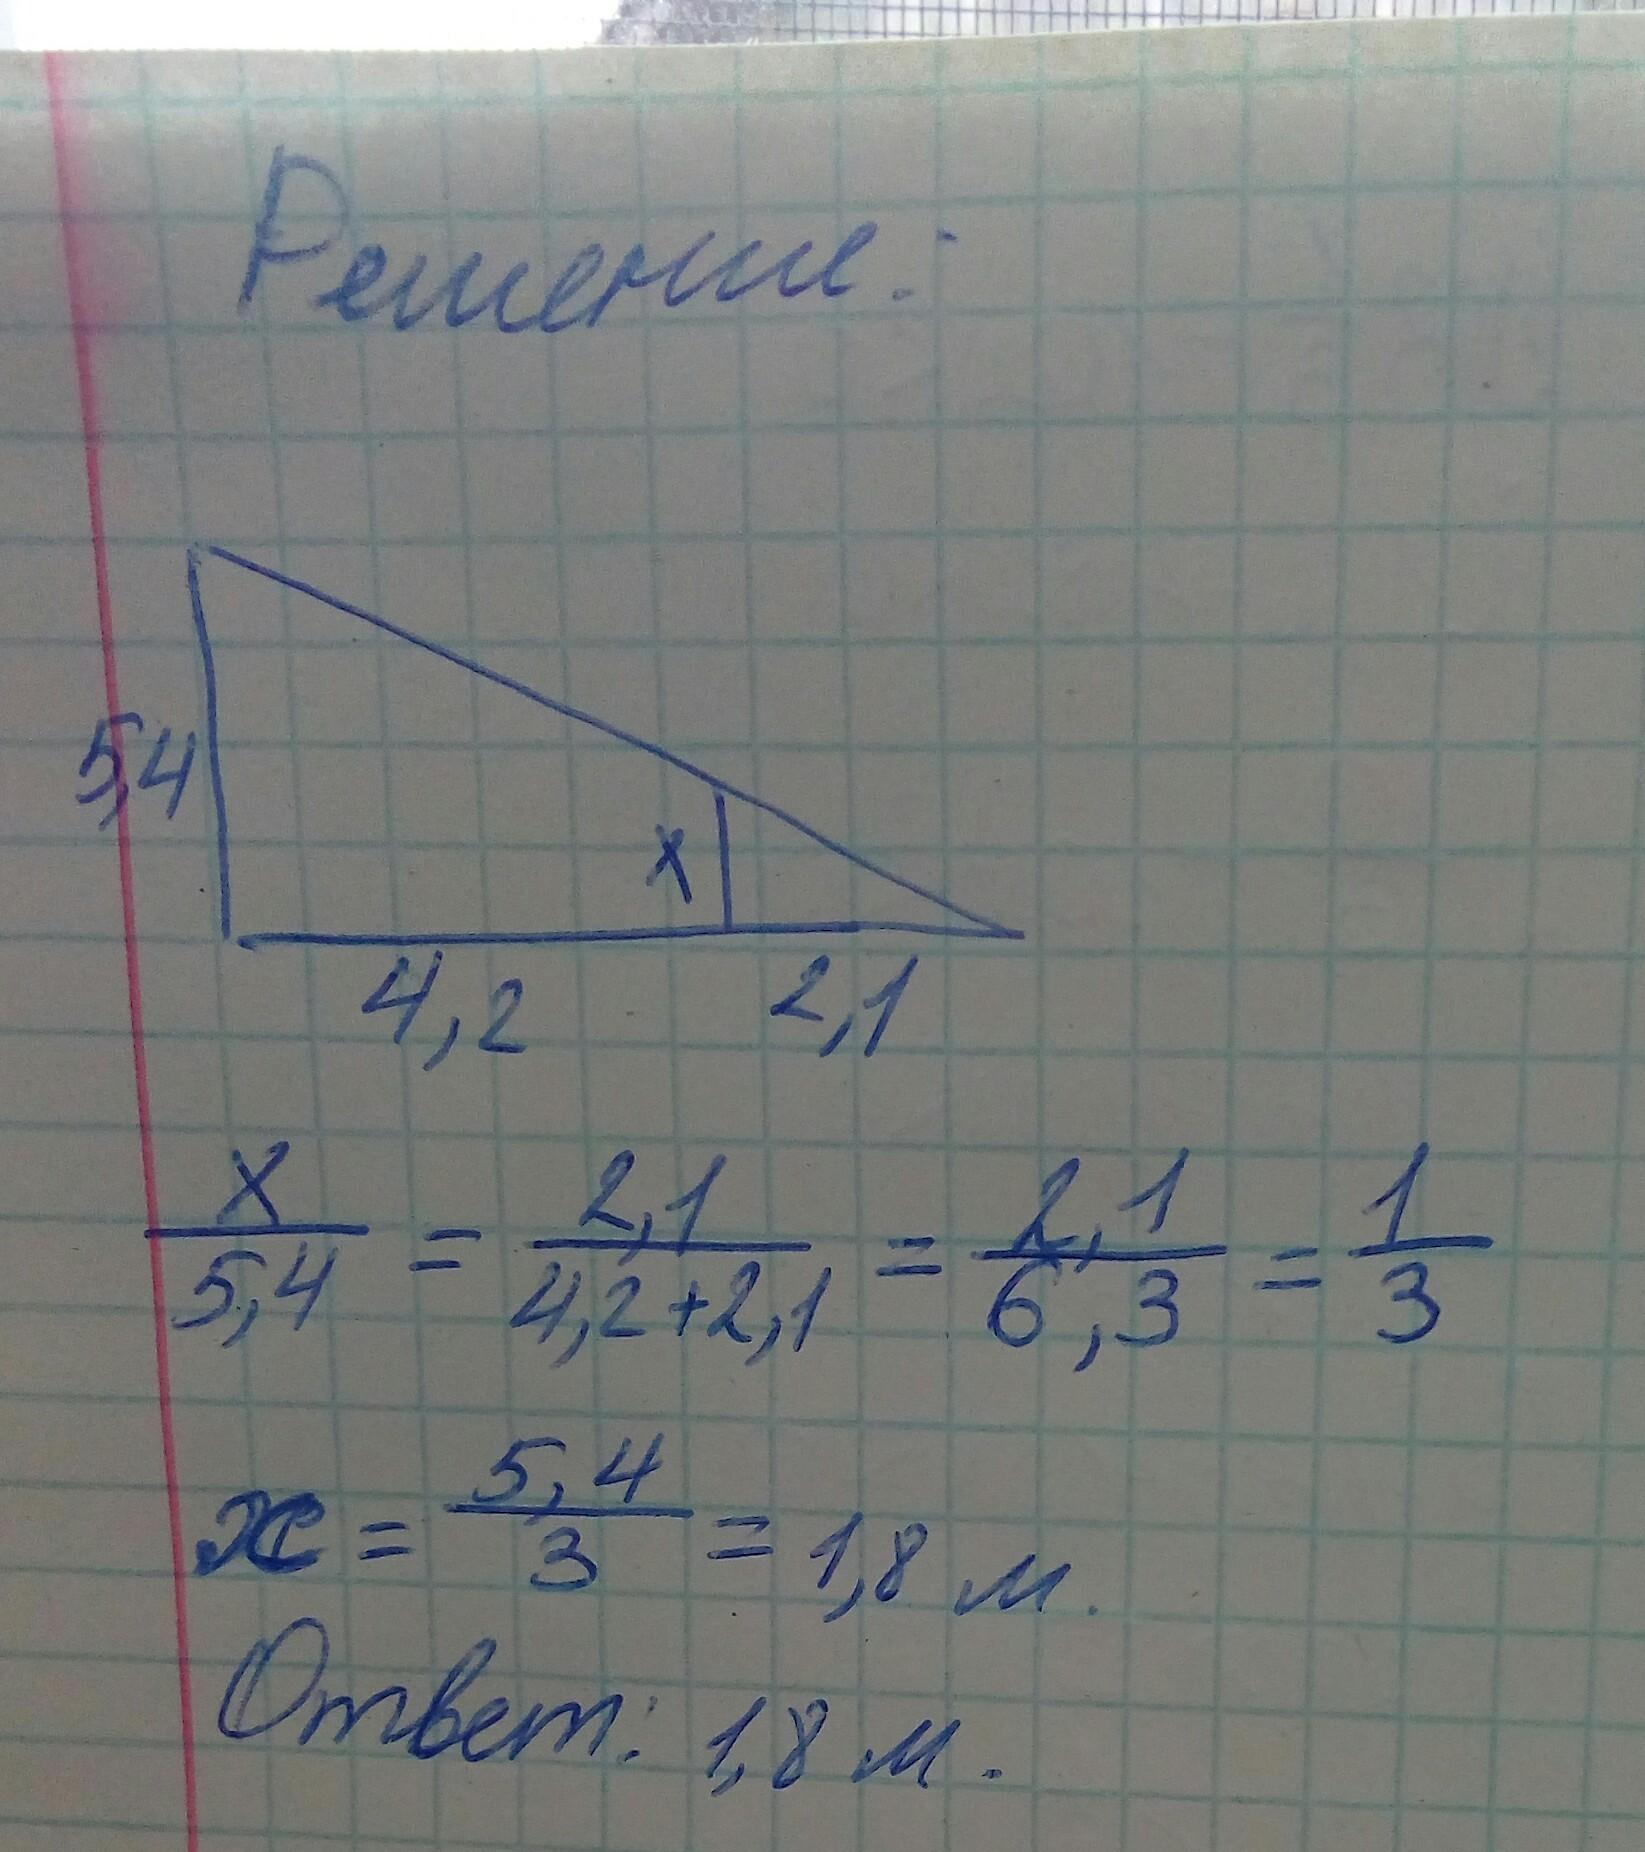 Решение:
5,4
x
4,2 2,1
x/5,4 = 2,1/4,2+2,1 = 2,1/6,3 = 1/3
x = 5,4/3 = 1,8 м.
Ответ: 1,8 м.